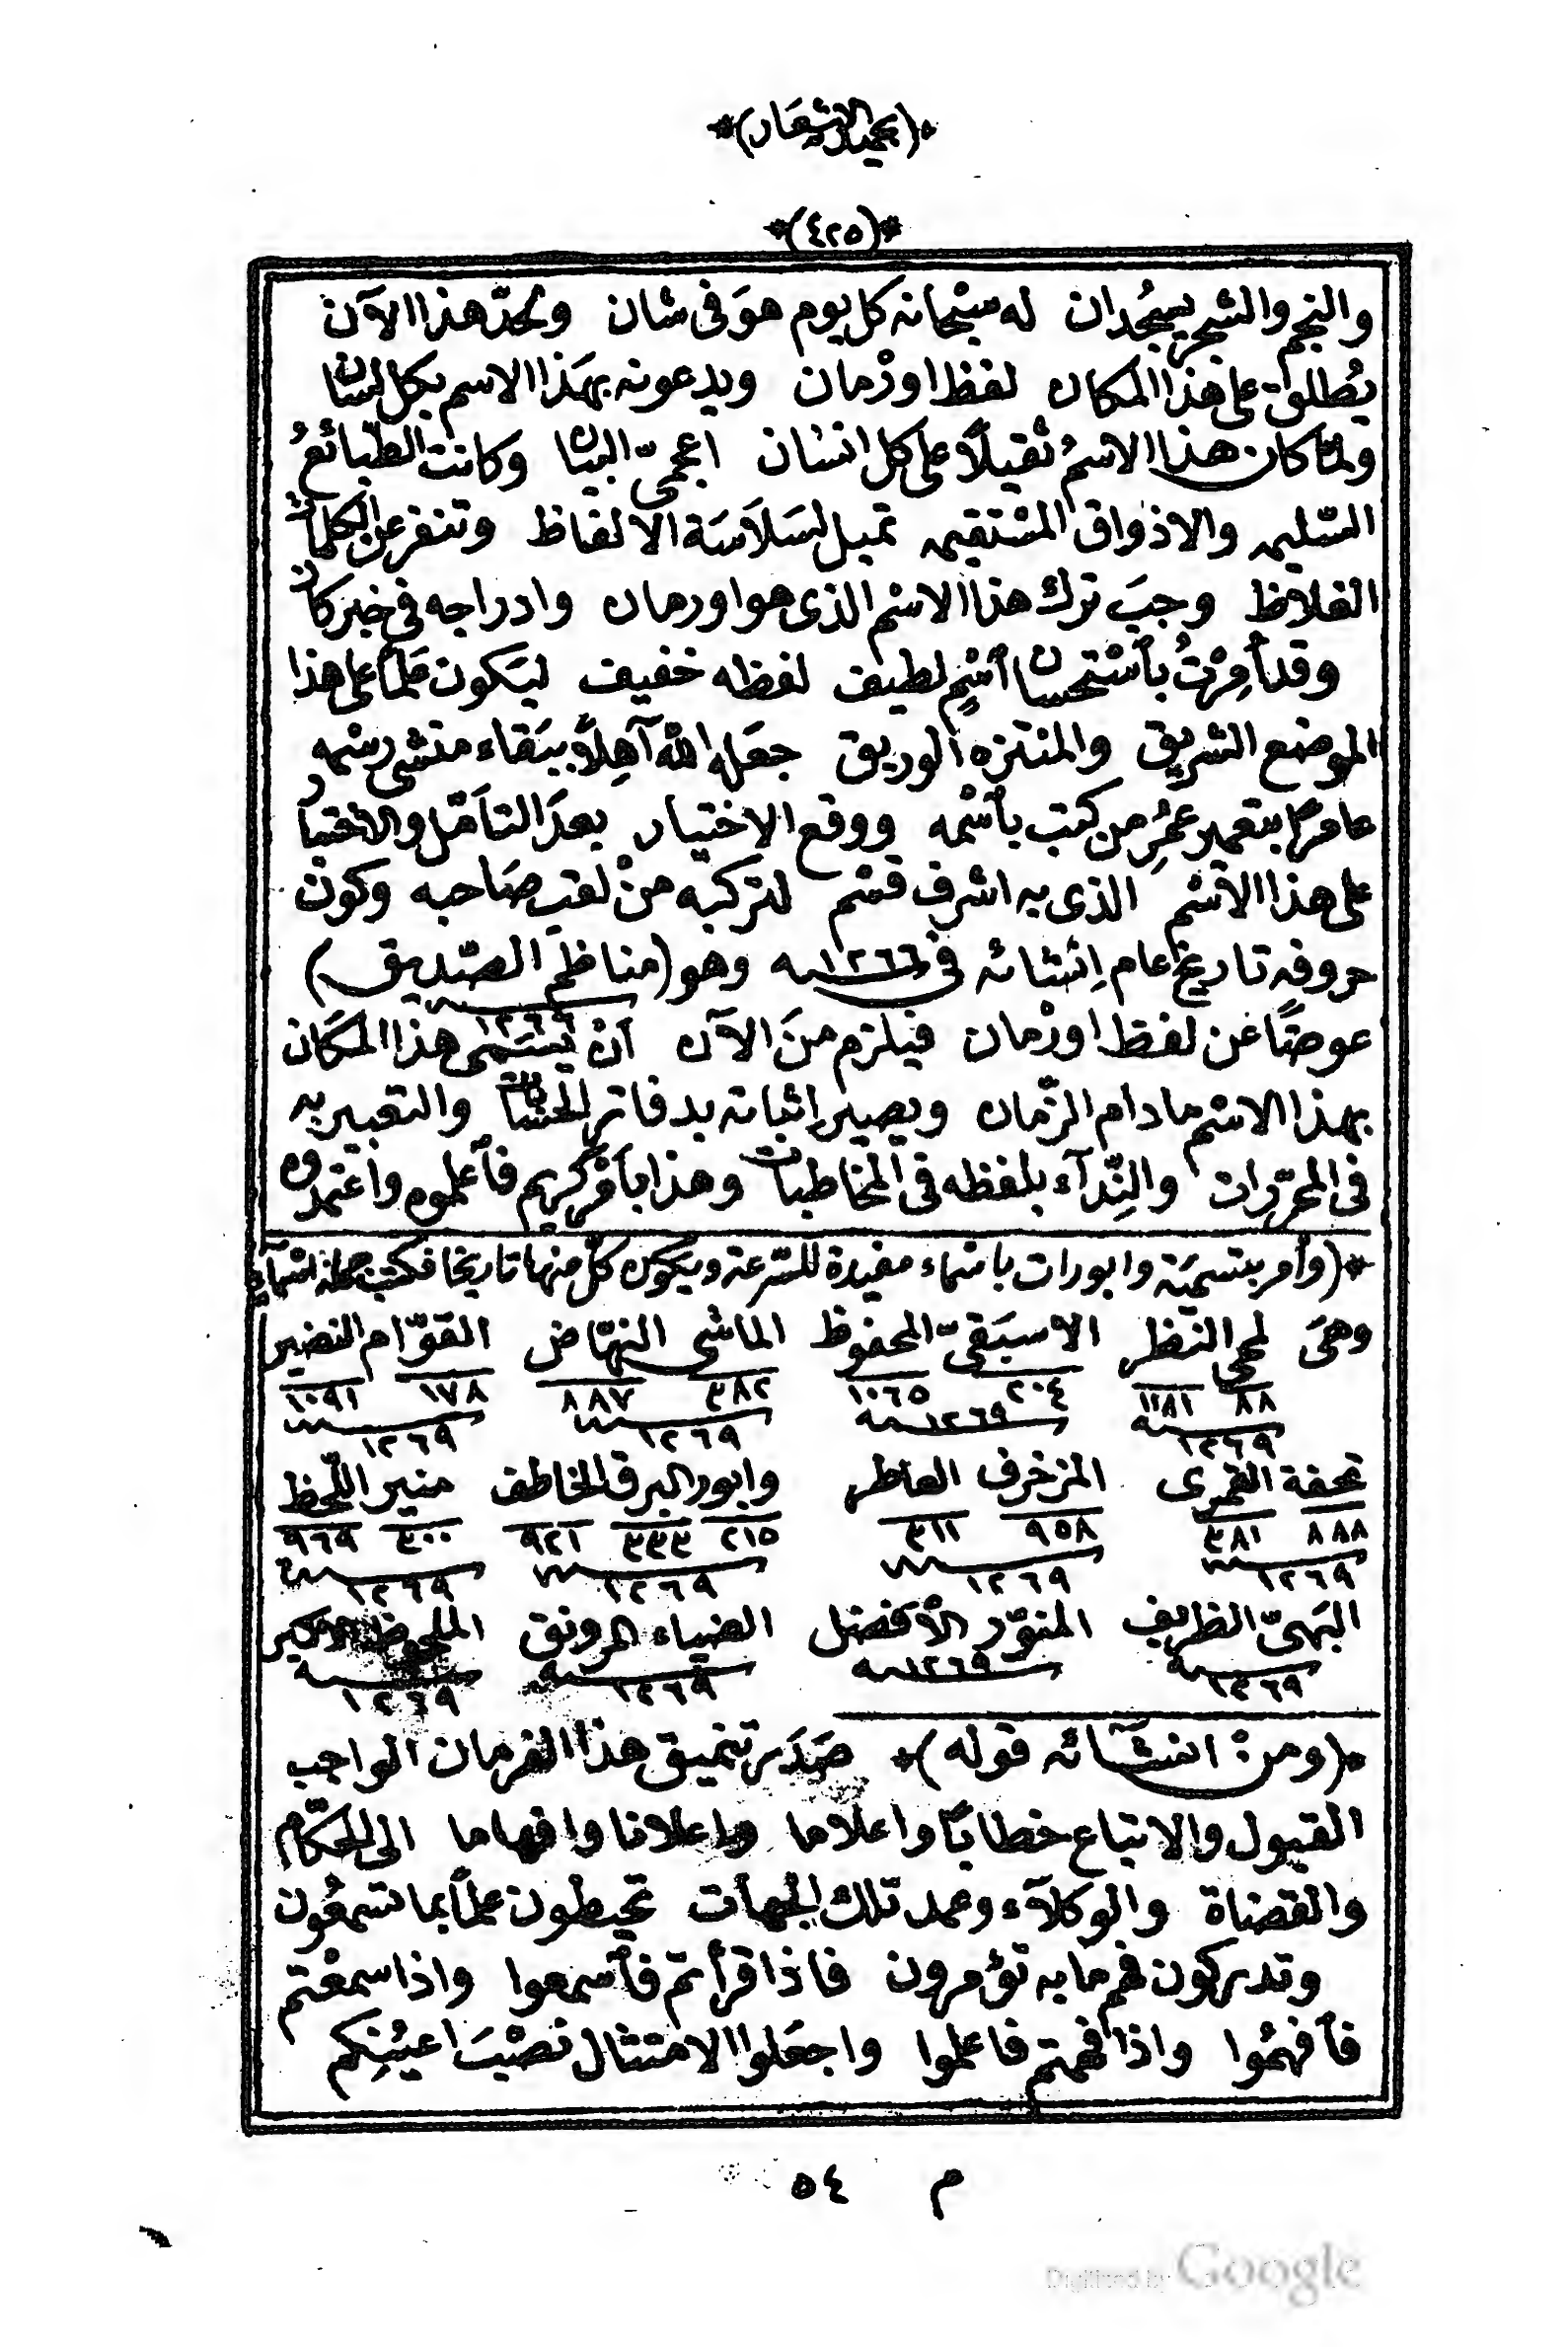 *(بحميد الاشعار)*
*(٤٢٥)*
والنجم والشجر يسجُدان له سبْحانه كل يوم هوَ في شان ولحدّ هذا الآن
يُطلق على هذا المكان لفظ اوزْمان ويدعونه بهَذا الاسم بكل لسان
ولمّا كان هذا الاسمُ ثقيلاً على كل انسْان اعجمىّ البيان وكانت الطّبائعُ
السّليمه والاذواق المسْتقيمه تميل لسَلاَسَة الالفاظ وتنفر عن الكلمات
الغلاظ وجبَ ترك هذا الاسْم الذى هو اورمان وادراجه فى خبر كان
وقد أمِرْتُ بأسْتحسان أسْمٍ لطيف لفظه خفيف ليَكون عَلماً على هذا
الموضع الشريق والمنتزه الوريق جعَله الله آهِلاً ببَقاء منشى رسْمه
عامرًا بتعمير عمُرِ من كتب بأسْمه ووقع الاختيار بعدَ التأمّل والاختبار
على هذا الاسْم الذى به اشرف قسْم لتركبه منْ لقب صَاحبه وكون
حروفه تاريخ عام اِنشائه فى ١٢٦٦ـنه وهو (مناظم الصّديق)
١٢٦٩
عوضًا عن لفظ اوزْمان فيلزم منَ الآن انْ يُسَمى هذا المكَان
بهذا الاسْم مادام الزّمان ويصير اِثباته بدفاتر الحسَاب والتعبير به
فى المحرّرات والنِّدآء بلفظه فى المخاطبات وهذا بأمْر كريم فأعلموه واعْتمدوه
*(وأمر بتسميَة وابورات باسْماء مفيدة للسّرعة ويَكون كلّ منها تاريخا فكتب جملة اسْماء
وهىَ لمحى النّظر الاسبَقىّ المحفوظ الماشى النهّاض القوّام النضير
٨٨ ١١٨١ ٢٠٤ ١٠٦٥ ٣٨٢ ٨٨٧ ١٧٨ ١٠٩١
١٢٦٩ ١٢٦٩ ١٢٦٩ ١٢٦٩
تحفة القمرى المزخرف العاطر وابور البرق الخاطف منير اللّحظ
٨٨٨ ٣٨١ ٩٥٨ ٣١١ ٢١٥ ٣٣٣ ٩٢١ ٣٠٠ ٩٦٩
١٢٦٩ ١٢٦٩ ١٢٦٩ ١٢٦٩
البَهىّ الظريف المنوّر الأفضل الضياء المرونق الملحوظ
١٢٦٩ ١٢٦٩ ١٢٦٩ ١٢٦٩
*(ومنْ انشآئه قوله)* صَدَر تنميق هذا الفرمان الواجب
القبول والاتباع خطابًا واعلاما واعلانا وافهاما الى الحكّام
والقضاة والوكلآء وعمد تلك الجهات تحيطون علماً بما تسمعُون
وتدركون فهم ما به تؤمرون فاذا قرأتم فأسمعوا واذا سمعْتم
فأفهمُوا واذا فهمتم فاعملوا واجعَلوا الامتثال نصْبَ اعيُنِكم
م ٥٤
Digitized by Google